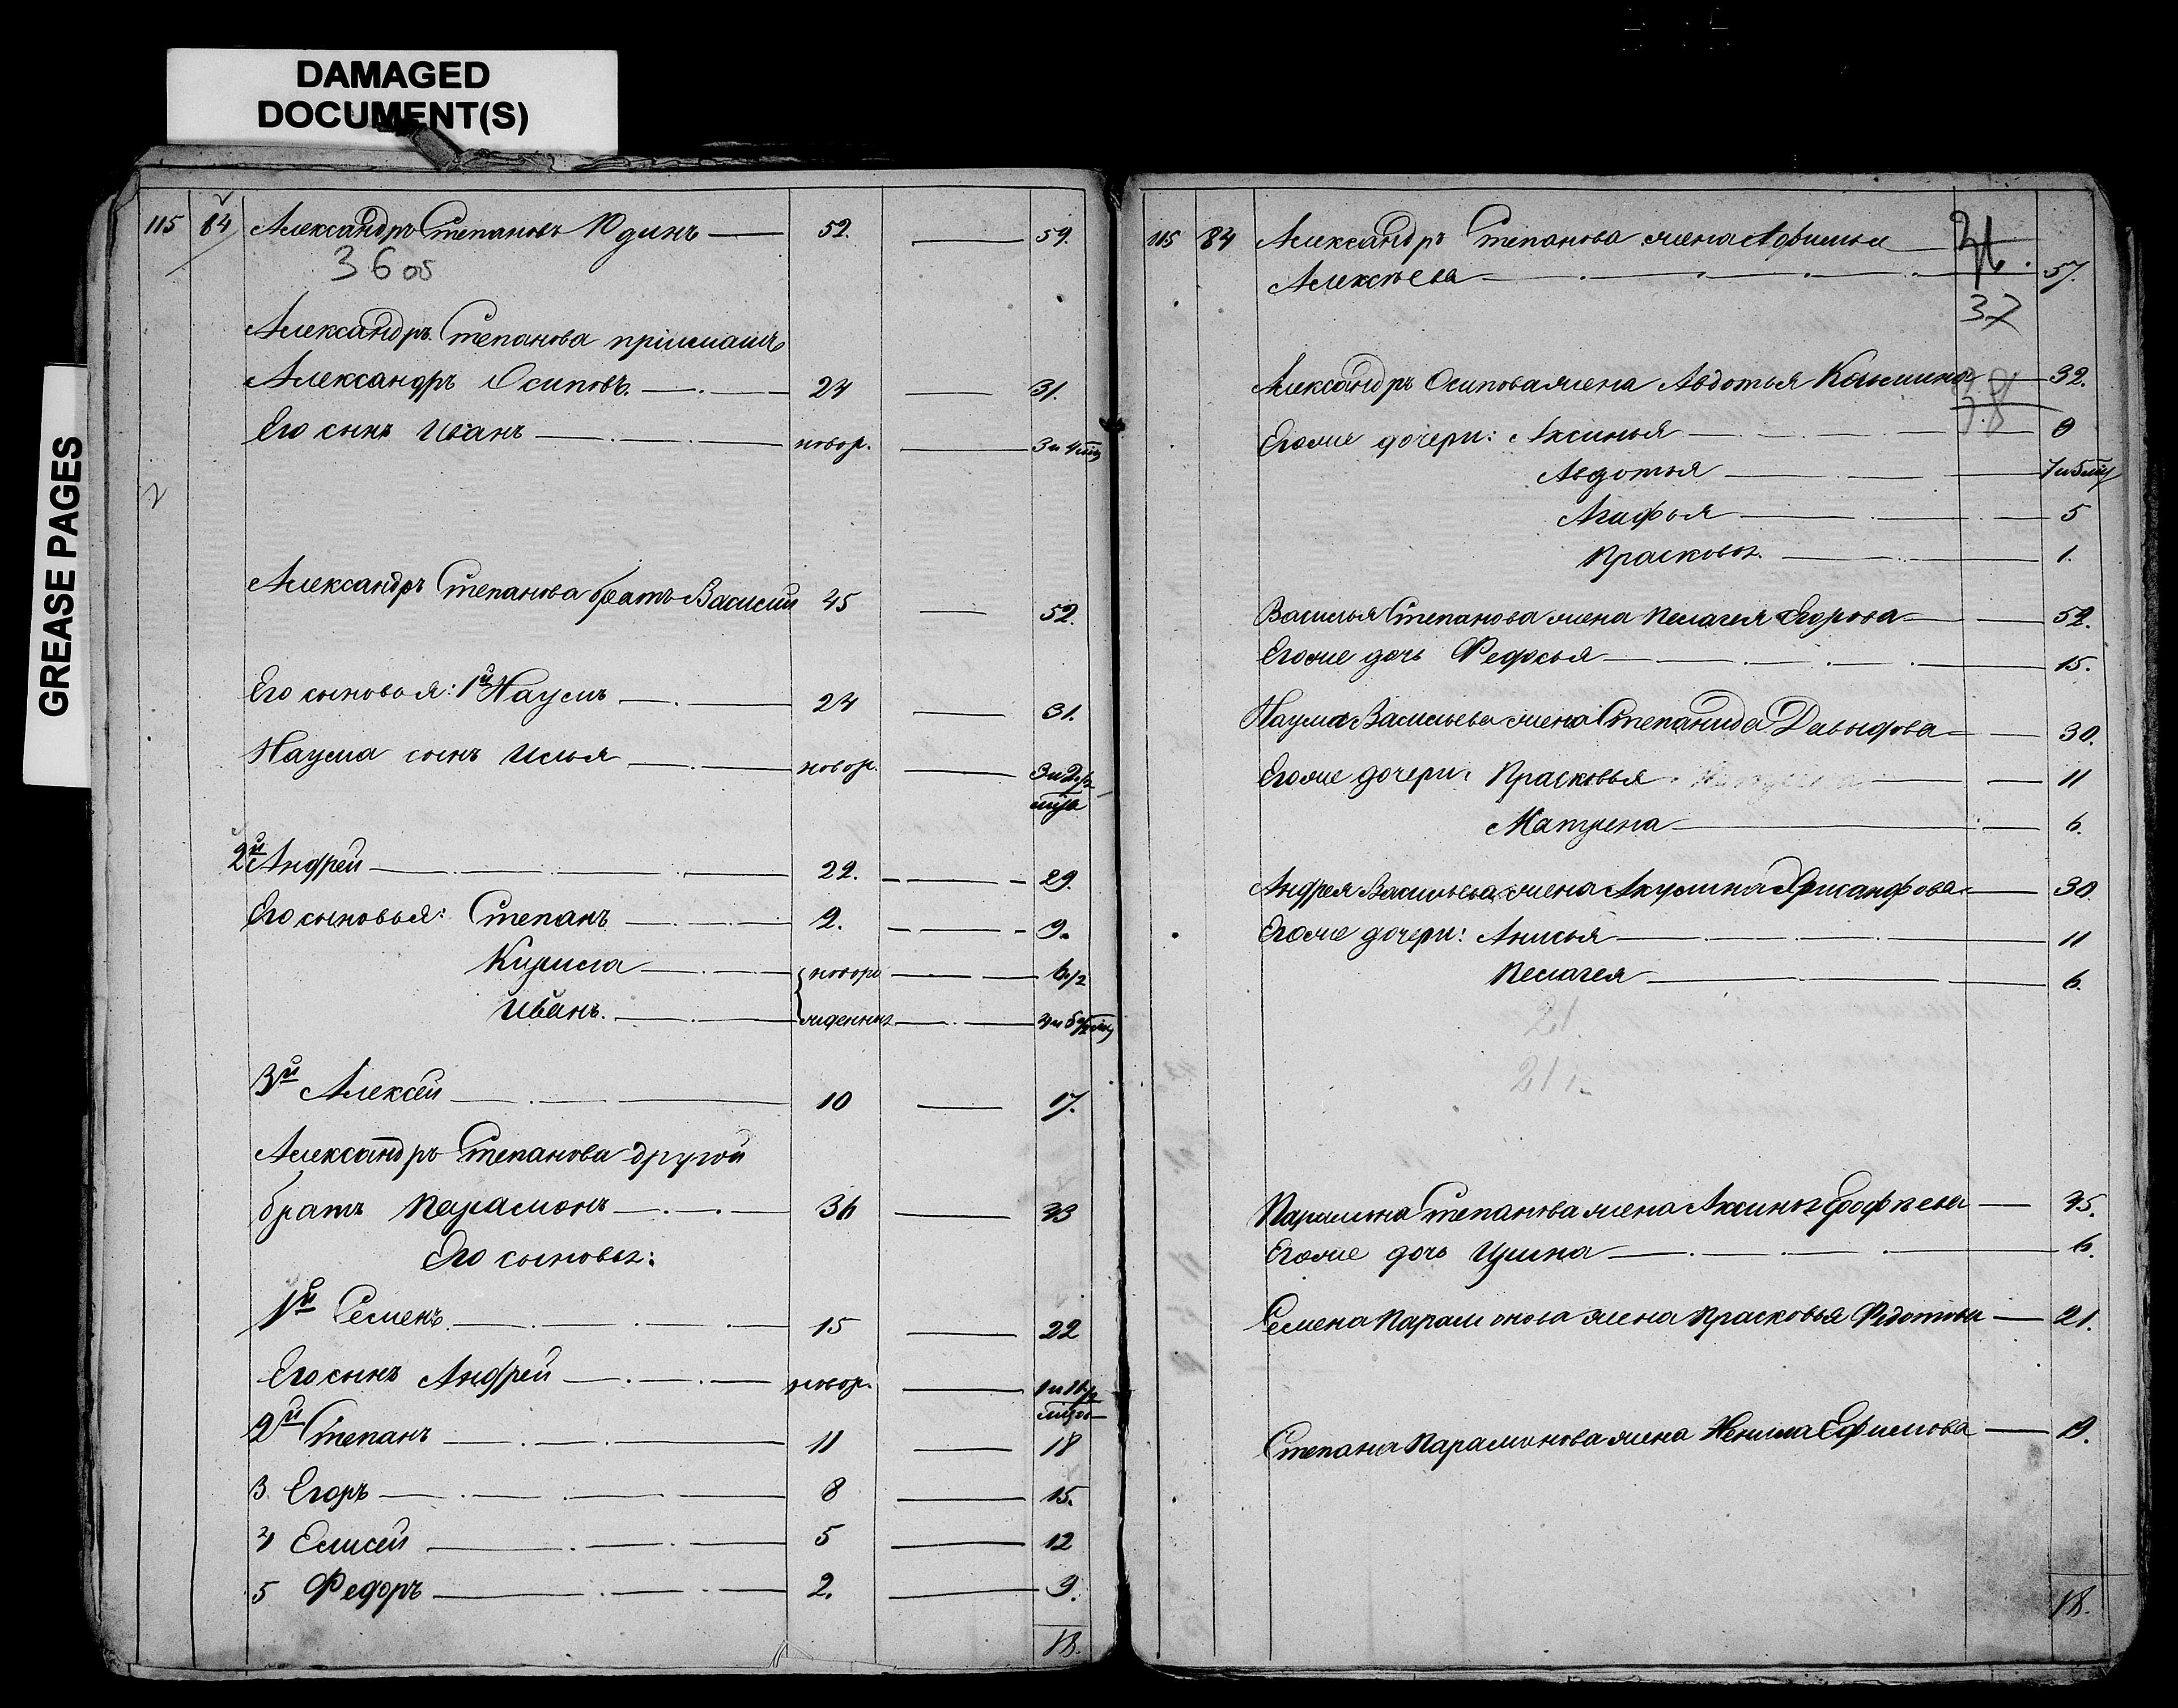 DAMAGED
DOCUMENT(S)
GREASE PAGES
115 84 Александръ Степановъ Юдинъ 52. 59.
36 об
Александръ Степанова пріимашъ
Александръ Осиповъ. 24 31.
Его сынъ Иванъ новор. 3 и 4 мц
Александръ Степанова братъ Василій 45 52.
Его сыновья: 1й Наумъ 24 31.
Наума сынъ Илья новор.
2й Андрей 22. 29.
Его сыновья: Степанъ 2. 9.
Кирила новоро 6 1/2
Иванъ. жденныя
3й Алексей 10 17.
Александръ Степанова другой
братъ Парамонъ 36 43
Его сыновья:
1й Семенъ 15 22
Его сынъ Андрей новор.
2й Степанъ 11 18
3. Егоръ 8 15.
4 Елисей 5 12
5 Федоръ 2. 9.
18.
115 84 Александръ Степанова жена Афимья
Алексѣева 57.
37
Александръ Осипова жена Авдотья Козьмина 32.
38
Егоже дочери: Аксинья 9
Авдотья
Агафья 5
Прасковья. 1.
Василья Степанова жена Пелагея Егорова 52.
Егоже дочь Федосья 15.
Наума Васильева жена Степанида Давыдова 30.
Егоже дочери: Прасковья 11
Матрена 6.
Андрея Васильева жена Акулина Хрисанфова 30.
Егоже дочери: Анисья 11
Пелагея 6.
21
21
Парамона Степанова жена Аксинья Ерофѣева 45.
Егоже дочь Ирина 6.
Семена Парамонова жена Прасковья Федотова 21.
Степана Парамонова жена Ненила Ефимова 19.
18.